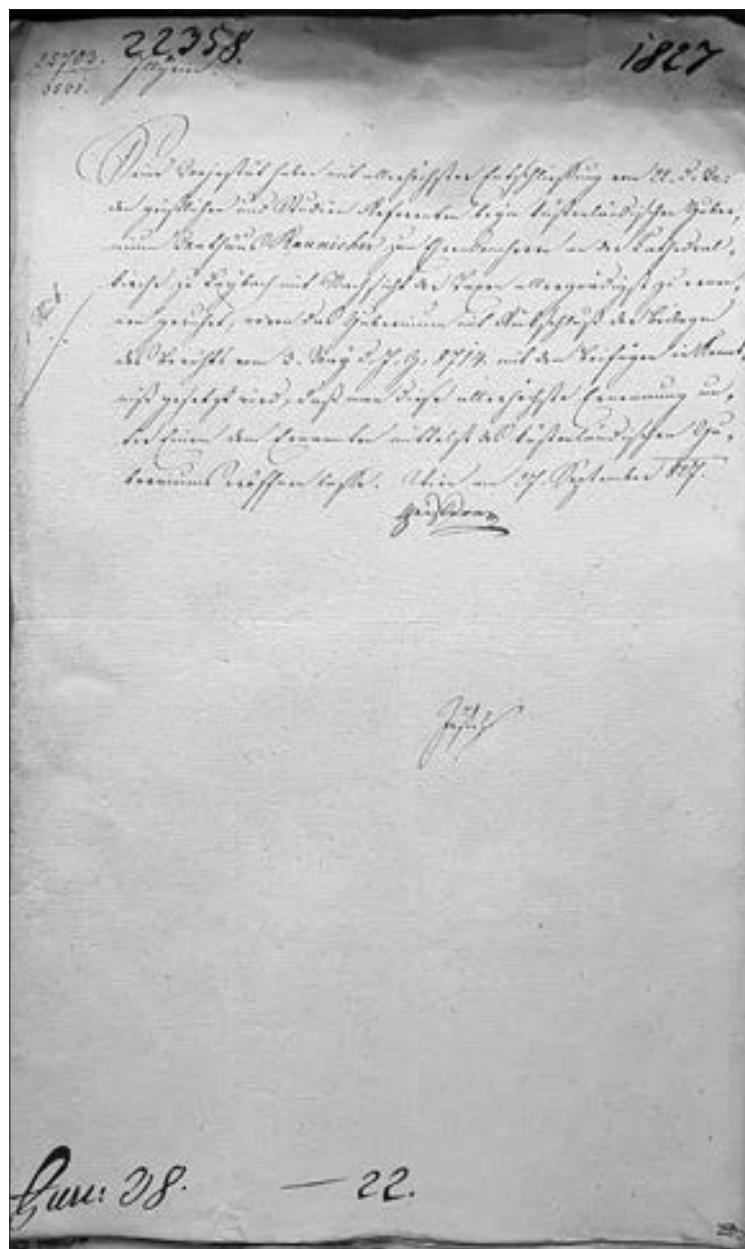 25703. 22358. 1827
Seine Majestät haben mit allerhöchster Entschließung vom 21. d. M.
den geistlichen und Studien Referenten beym küstenländischen Guber,
nium Matthäus Raunicher zum Ehrendomherrn an der Kathedral,
kirche zu Laybach mit Nachsicht der Taxen allergnädigst zu ernen,
nen geruhet, wovon das Gubernium mit Rückschluß der Beilagen
des Berichts vom 3. May d. J. Z. 8714. mit dem Beifügen in Kennt,
niß gesetzt wird, daß man diese allerhöchste Ernennung un,
ter Einem dem Ernannten mittelst des küstenländischen Gu,
berniums eröffnen lasse. Wien am 27. September 827.
38. — 22.